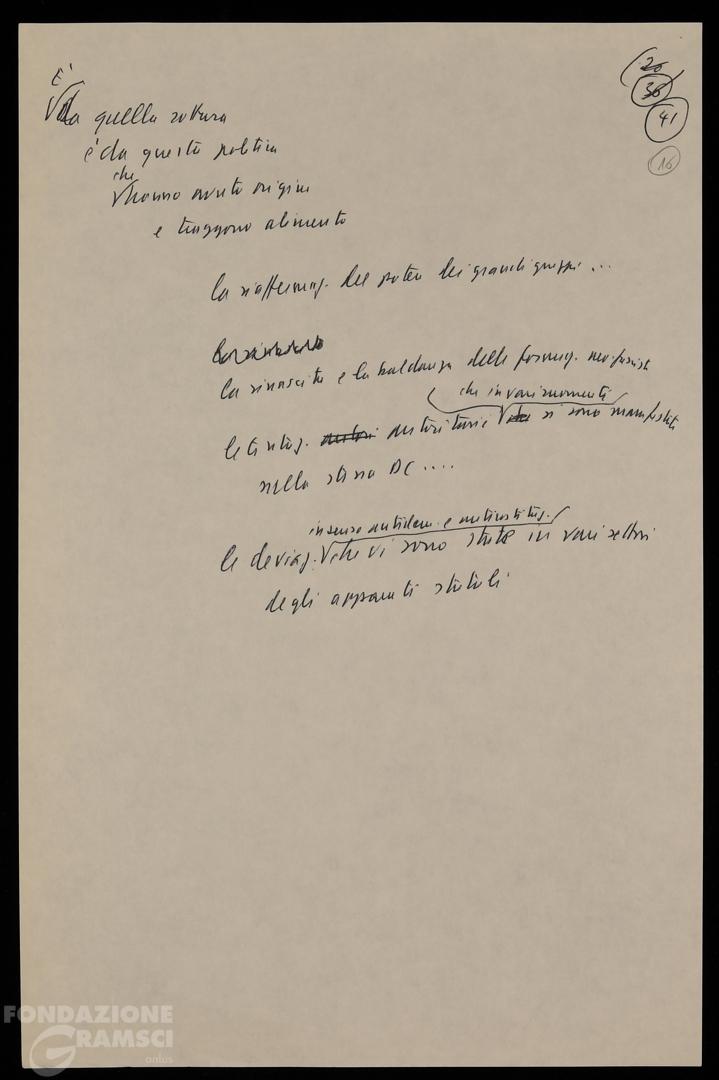 20
36
41
16
È
da quella rottura
è da questa politica
che
hanno avuto origine
e traggono alimento
la riaffermaz. del potere dei grandi gruppi ...
la rinascita e la baldanza delle formaz. neo-fasciste
che in vari momenti
le tentaz. autoritarie si sono manifestate
nella stessa DC ....
in senso antidem. e antiistituz.
le deviaz. che vi sono state in vari settori
degli apparati statali
FONDAZIONE
GRAMSCI
onlus